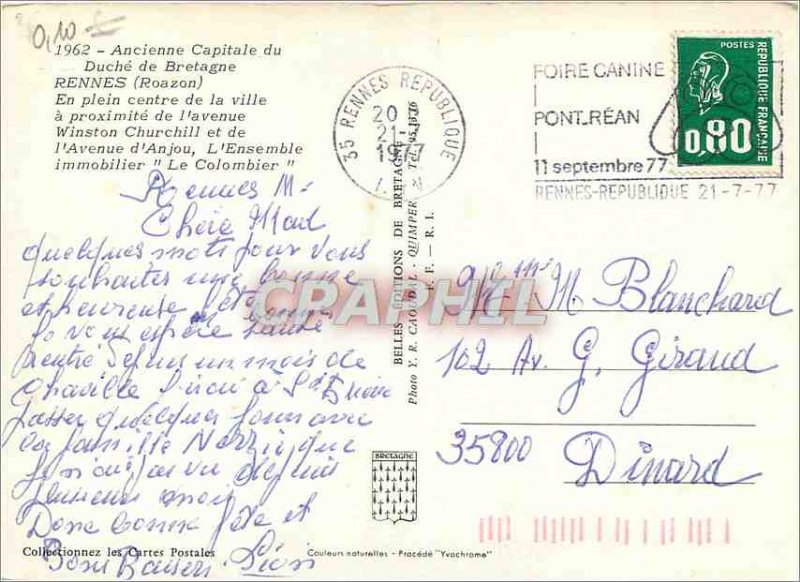 0,10
1962 - Ancienne Capitale du
Duché de Bretagne
RENNES (Roazon)
En plein centre de la ville
à proximité de l'avenue
Winston Churchill et de
l'Avenue d'Anjou, L'Ensemble
immobilier " Le Colombier "
35 RENNES REPUBLIQUE
20 H
21-7
1977
FOIRE CANINE
PONT-RÉAN
11 septembre 77
RENNES-REPUBLIQUE 21-7-77
POSTES
REPUBLIQUE FRANÇAISE
0,80
Rennes
Chère
quelques mots pour vous
souhaiter une bonne
et heureuse fête
Je vous espère bonne santé
Rentré depuis un mois de
Chaville J'irai à St
passer quelques jours avec
la famille que
pas vu depuis
plusieurs mois
Donc bonne fête et
Bons Baisers
BELLES EDITIONS DE BRETAGNE
Photo Y. R. CAOUDAL - QUIMPER
E. F. - R. I.
Mme M Blanchard
102 Av. G. Giraud
35800
Dinard
BRETAGNE
Collectionnez les Cartes Postales
Couleurs naturelles - Procédé "Yvochrome"
CRAPHIL